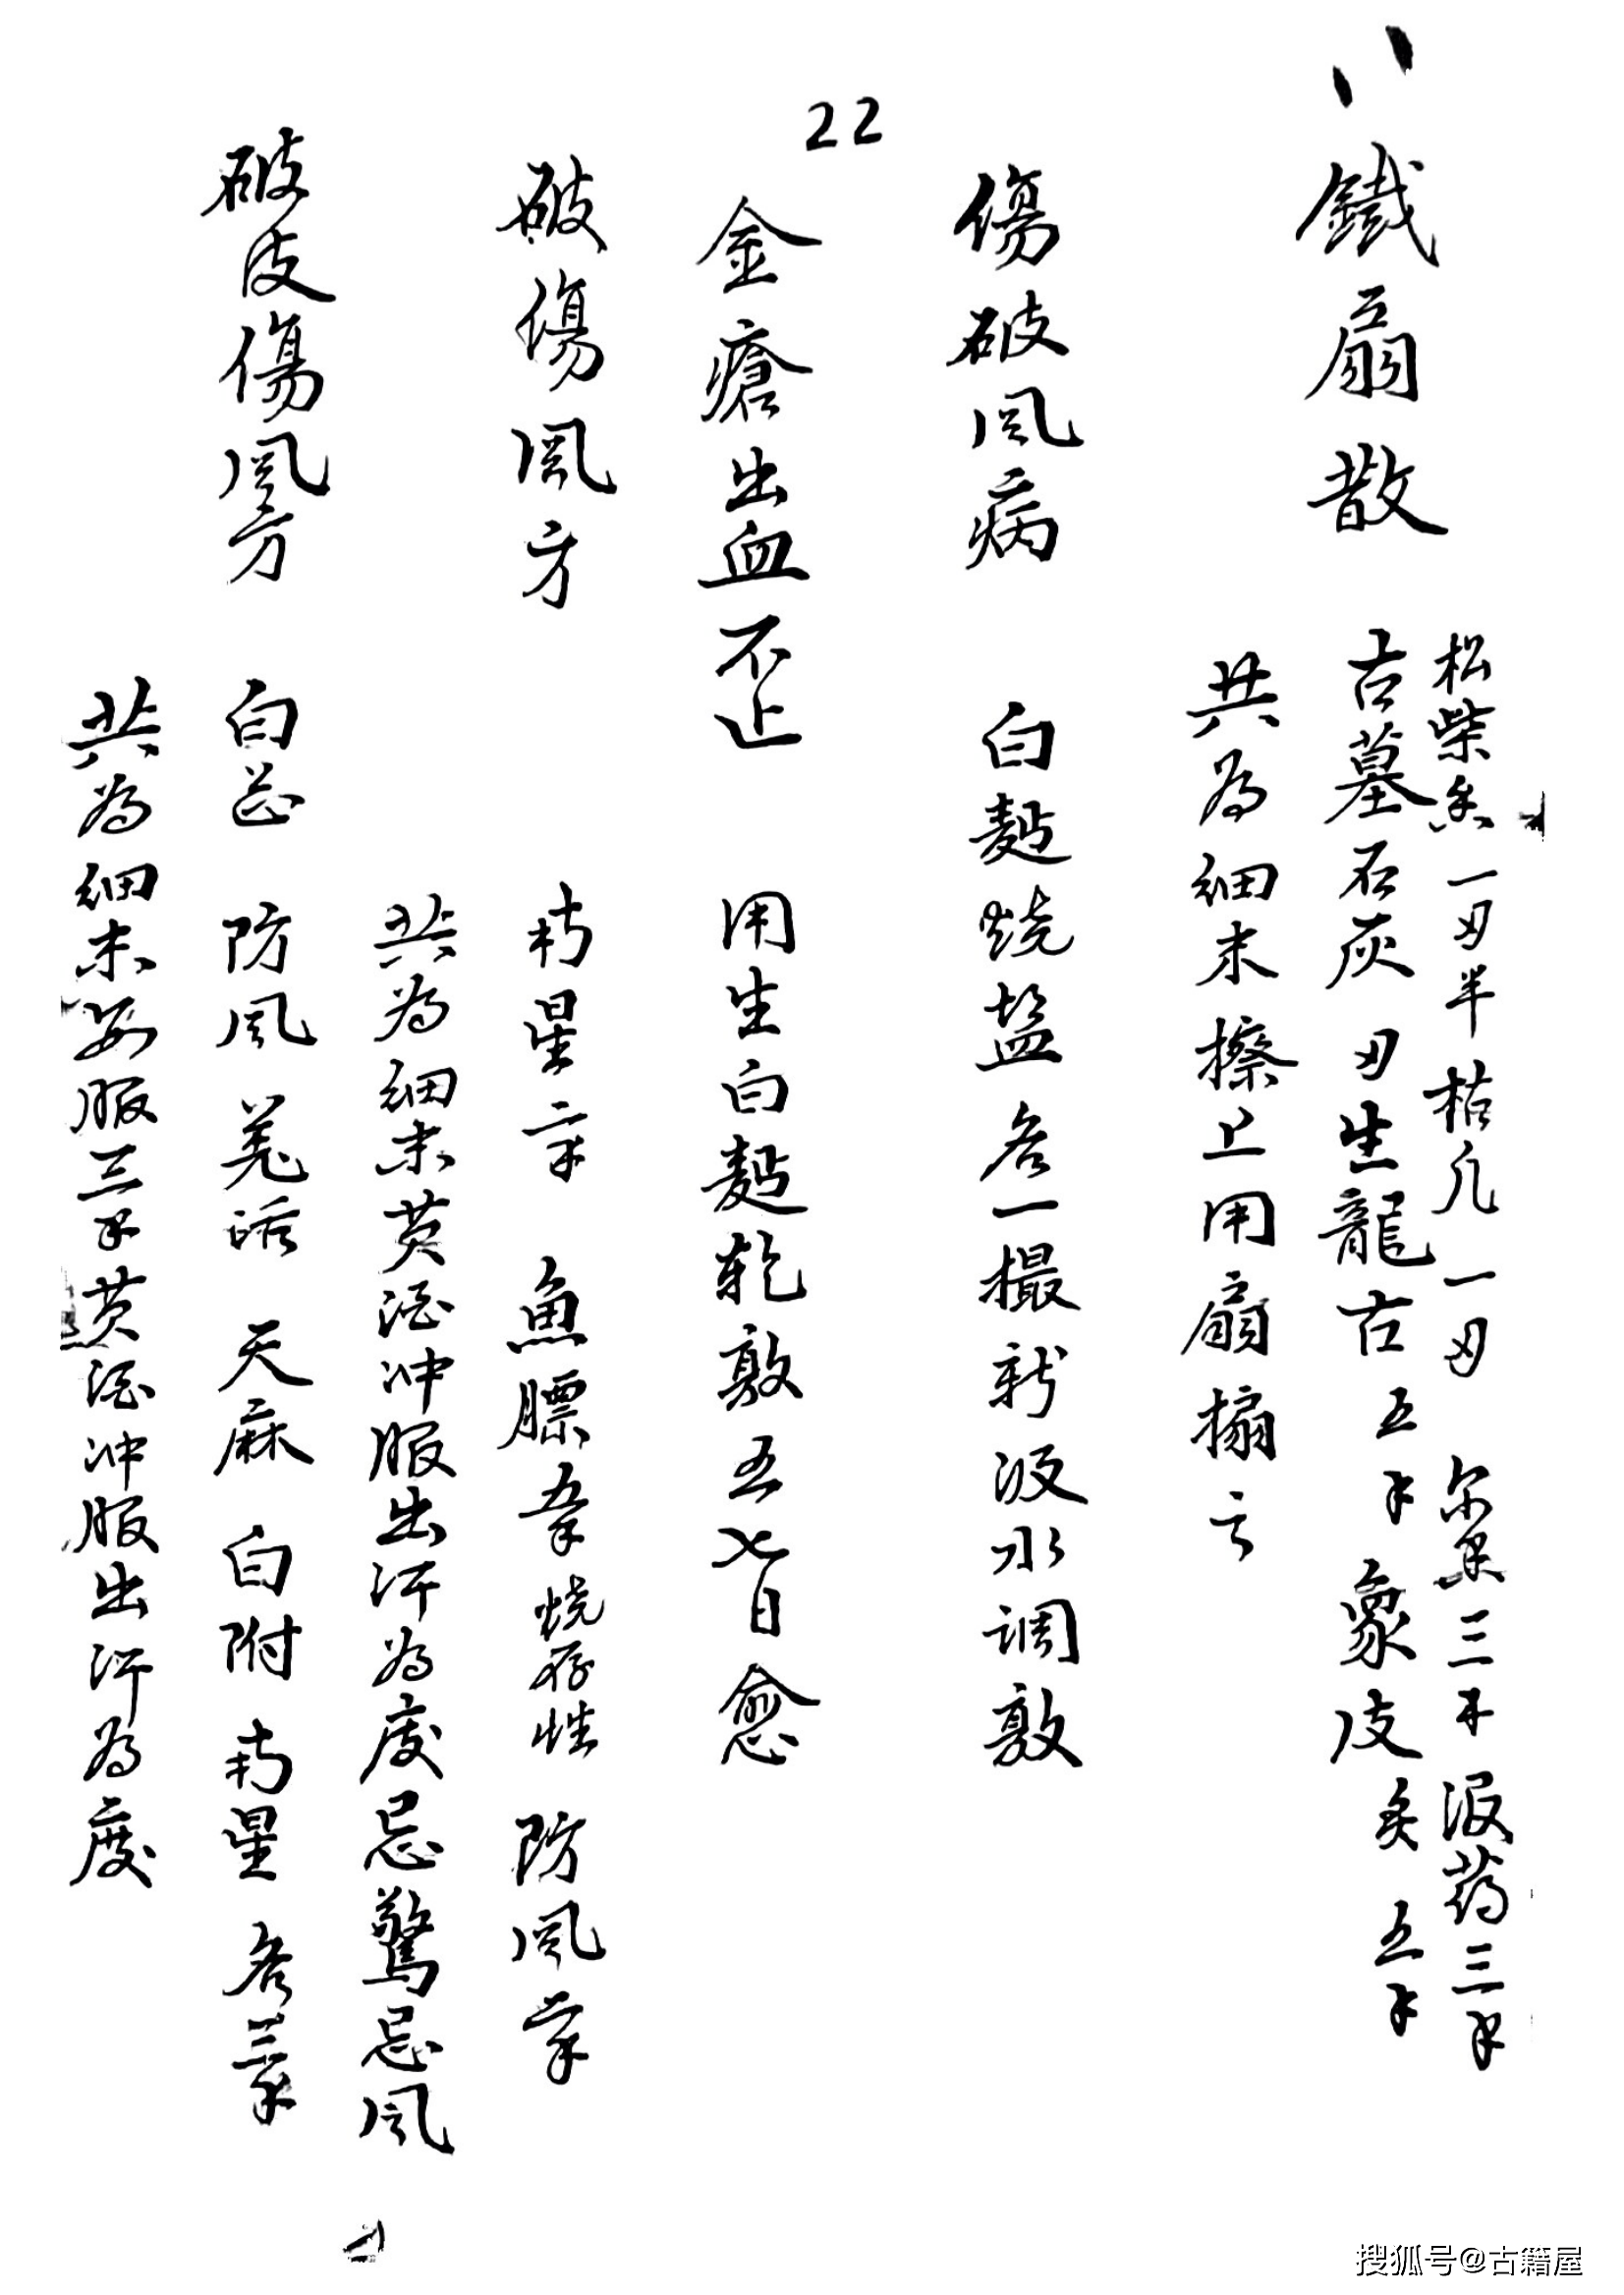 22
鐵扇散
松柴香一刃半 枯凡一刃 尔呆三子 没药三子
古墓石灰刃 生龍古五子 象皮炙五子
共為細末擦上用扇搧之
傷破風病 白麯烧盐各一撮新汲水调敷
金瘡出血不止 用生白麯乾敷五七日愈
破傷風方 南星二子 魚膘五子 烧存性 防風子
共為細末黄酒冲服出汗為度忌驚忌風
破皮傷風方 白芷 防風 羌活 天麻 白附 南星 各三子
共為細末每服三子黄酒冲服出汗為度
搜狐号@古籍屋